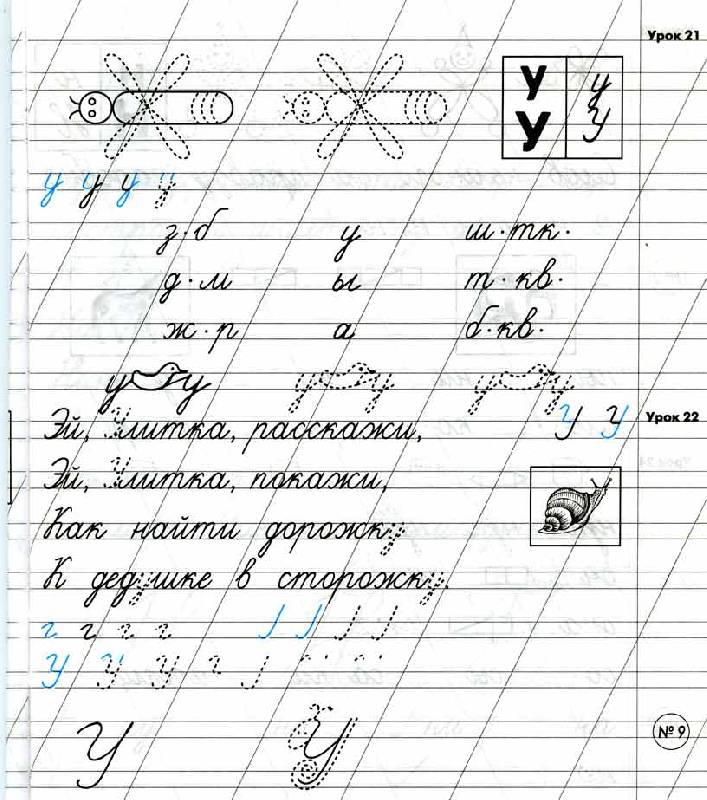 Урок 21
У у
У У
у у у у
з·б у ш·тк·
д·м ы т·кв·
ж·р а б·кв·
у у у у у у
Эй, Улитка, расскажи, У У
Урок 22
Эй, Улитка, покажи,
Как найти дорожку
К дедушке в сторожку.
У У У
У У
№ 9